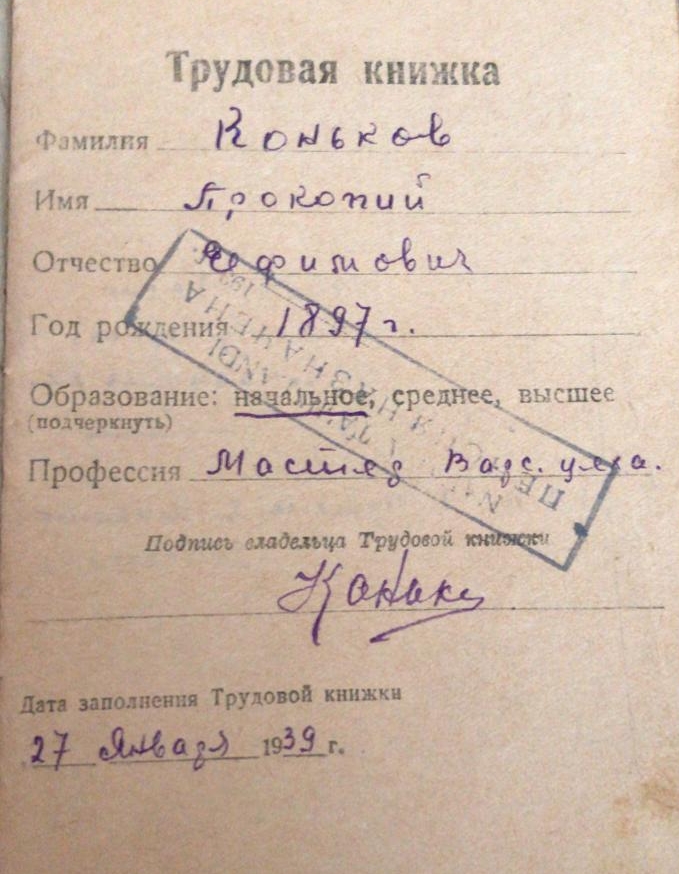 Трудовая книжка
Фамилия Коньков
Имя Прокопий
Отчество Ефимович
Год рождения 1897 г.
Образование: начальное, среднее, высшее
(подчеркнуть)
Профессия Мастер цеха.
ПЕНСИЯ НАЗНАЧЕНА
Подпись владельца Трудовой книжки
Дата заполнения Трудовой книжки
27 Января 1939 г.